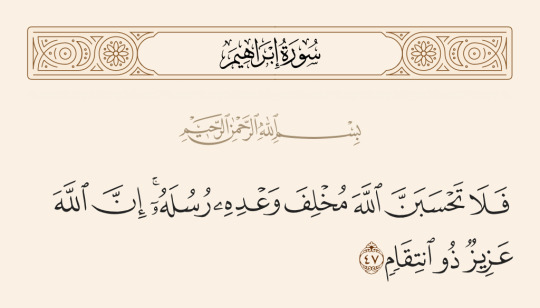 سُورَةُ إِبْرَاهِيمَ
بِسْمِ ٱللَّهِ ٱلرَّحْمَٰنِ ٱلرَّحِيمِ
فَلَا تَحْسَبَنَّ ٱللَّهَ مُخْلِفَ وَعْدِهِۦ رُسُلَهُۥٓ ۚ إِنَّ ٱللَّهَ
عَزِيزٌ ذُو ٱنتِقَامٍ ٤٧